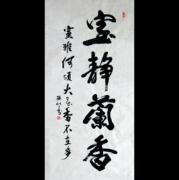 室静蘭香
室雅何须大花香不在多